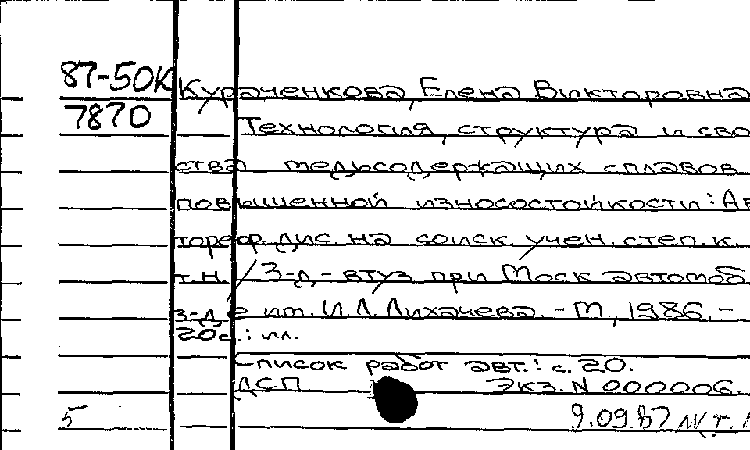 87-50К
7870
Кураченкова, Елена Викторовна
Технология, структура и сво
ства медьсодержащих сплавов
повышенной износостойкости: Ав
тореф. дис. на соиск. учен. степ. к.
т.н. / З-д-втуз при Моск автомоб
з-де им. И.А. Лихачева. - М, 1986. -
20с.: ил.
Список работ авт.: с. 20.
ДСП Экз. N 000006.
5 9.09.87